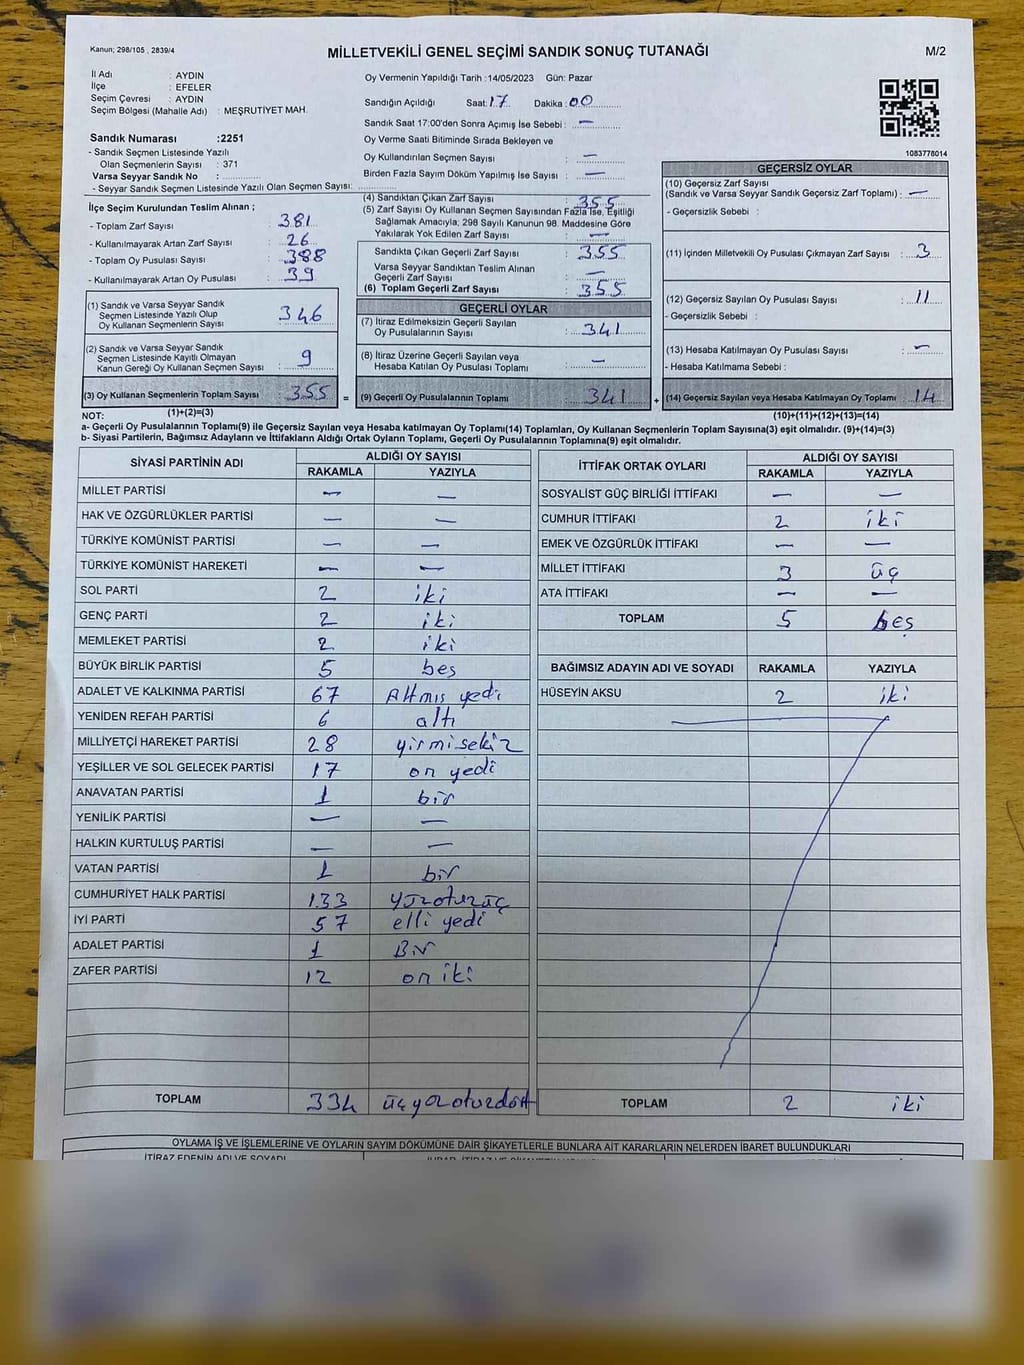 Kanun; 298/105 , 2839/4
MİLLETVEKİLİ GENEL SEÇİMİ SANDIK SONUÇ TUTANAĞI
M/2
İl Adı : AYDIN
İlçe : EFELER
Seçim Çevresi : AYDIN
Seçim Bölgesi (Mahalle Adı) : MEŞRUTİYET MAH.
Sandık Numarası :2251
- Sandık Seçmen Listesinde Yazılı
Olan Seçmenlerin Sayısı : 371
Varsa Seyyar Sandık No :
- Seyyar Sandık Seçmen Listesinde Yazılı Olan Seçmen Sayısı:
Oy Vermenin Yapıldığı Tarih :14/05/2023 Gün: Pazar
Sandığın Açıldığı Saat: 17 Dakika: 00
Sandık Saat 17:00'den Sonra Açmış İse Sebebi : —
Oy Verme Saati Bitiminde Sırada Bekleyen ve
Oy Kullandırılan Seçmen Sayısı : —
Birden Fazla Sayım Döküm Yapılmış İse Sayısı : —
1083778014
İlçe Seçim Kurulundan Teslim Alınan ;
- Toplam Zarf Sayısı : 381
- Kullanılmayarak Artan Zarf Sayısı : 26
- Toplam Oy Pusulası Sayısı : 388
- Kullanılmayarak Artan Oy Pusulası : 39
(1) Sandık ve Varsa Seyyar Sandık
Seçmen Listesinde Yazılı Olup
Oy Kullanan Seçmenlerin Sayısı : 346
(2) Sandık ve Varsa Seyyar Sandık
Seçmen Listesinde Kayıtlı Olmayan
Kanun Gereği Oy Kullanan Seçmen Sayısı : 9
(3) Oy Kullanan Seçmenlerin Toplam Sayısı : 355 =
(1)+(2)=(3)
(4) Sandıktan Çıkan Zarf Sayısı : 355
(5) Zarf Sayısı Oy Kullanan Seçmen Sayısından Fazla İse, Eşitliği
Sağlamak Amacıyla; 298 Sayılı Kanunun 98. Maddesine Göre
Yakılarak Yok Edilen Zarf Sayısı : —
Sandıkta Çıkan Geçerli Zarf Sayısı : 355
Varsa Seyyar Sandıktan Teslim Alınan
Geçerli Zarf Sayısı : —
(6) Toplam Geçerli Zarf Sayısı : 355
GEÇERLİ OYLAR
(7) İtiraz Edilmeksizin Geçerli Sayılan
Oy Pusulalarının Sayısı : 341
(8) İtiraz Üzerine Geçerli Sayılan veya
Hesaba Katılan Oy Pusulası Toplamı : —
(9) Geçerli Oy Pusulalarının Toplamı : 341 +
GEÇERSİZ OYLAR
(10) Geçersiz Zarf Sayısı
(Sandık ve Varsa Seyyar Sandık Geçersiz Zarf Toplamı) : —
- Geçersizlik Sebebi :
(11) İçinden Milletvekili Oy Pusulası Çıkmayan Zarf Sayısı : 3
(12) Geçersiz Sayılan Oy Pusulası Sayısı : 11
- Geçersizlik Sebebi :
(13) Hesaba Katılmayan Oy Pusulası Sayısı : —
- Hesaba Katılmama Sebebi :
(14) Geçersiz Sayılan veya Hesaba Katılmayan Oy Toplamı : 14
(10)+(11)+(12)+(13)=(14)
NOT:
a- Geçerli Oy Pusulalarının Toplamı(9) ile Geçersiz Sayılan veya Hesaba katılmayan Oy Toplamı(14) Toplamları, Oy Kullanan Seçmenlerin Toplam Sayısına(3) eşit olmalıdır. (9)+(14)=(3)
b- Siyasi Partilerin, Bağımsız Adayların ve İttifakların Aldığı Ortak Oyların Toplamı, Geçerli Oy Pusulalarının Toplamına(9) eşit olmalıdır.
SİYASİ PARTİNİN ADI ALDIĞI OY SAYISI
RAKAMLA YAZIYLA
MİLLET PARTİSİ — —
HAK VE ÖZGÜRLÜKLER PARTİSİ — —
TÜRKİYE KOMÜNİST PARTİSİ — —
TÜRKİYE KOMÜNİST HAREKETİ — —
SOL PARTİ 2 iki
GENÇ PARTİ 2 iki
MEMLEKET PARTİSİ 2 iki
BÜYÜK BİRLİK PARTİSİ 5 beş
ADALET VE KALKINMA PARTİSİ 67 Altmış yedi
YENİDEN REFAH PARTİSİ 6 altı
MİLLİYETÇİ HAREKET PARTİSİ 28 yirmi sekiz
YEŞİLLER VE SOL GELECEK PARTİSİ 17 on yedi
ANAVATAN PARTİSİ 1 bir
YENİLİK PARTİSİ — —
HALKIN KURTULUŞ PARTİSİ — —
VATAN PARTİSİ 1 bir
CUMHURİYET HALK PARTİSİ 133 yüzotuzüç
İYİ PARTİ 57 elli yedi
ADALET PARTİSİ 1 Bir
ZAFER PARTİSİ 12 on iki
TOPLAM 334 üçyüzotuzdört
İTTİFAK ORTAK OYLARI ALDIĞI OY SAYISI
RAKAMLA YAZIYLA
SOSYALİST GÜÇ BİRLİĞİ İTTİFAKI — —
CUMHUR İTTİFAKI 2 iki
EMEK VE ÖZGÜRLÜK İTTİFAKI — —
MİLLET İTTİFAKI 3 üç
ATA İTTİFAKI — —
TOPLAM 5 beş
BAĞIMSIZ ADAYIN ADI VE SOYADI RAKAMLA YAZIYLA
HÜSEYİN AKSU 2 iki
TOPLAM 2 iki
OYLAMA İŞ VE İŞLEMLERİNE VE OYLARIN SAYIM DÖKÜMÜNE DAİR ŞİKAYETLERLE BUNLARA AİT KARARLARIN NELERDEN İBARET BULUNDUKLARI
İTİRAZ EDENİN ADI VE SOYADI